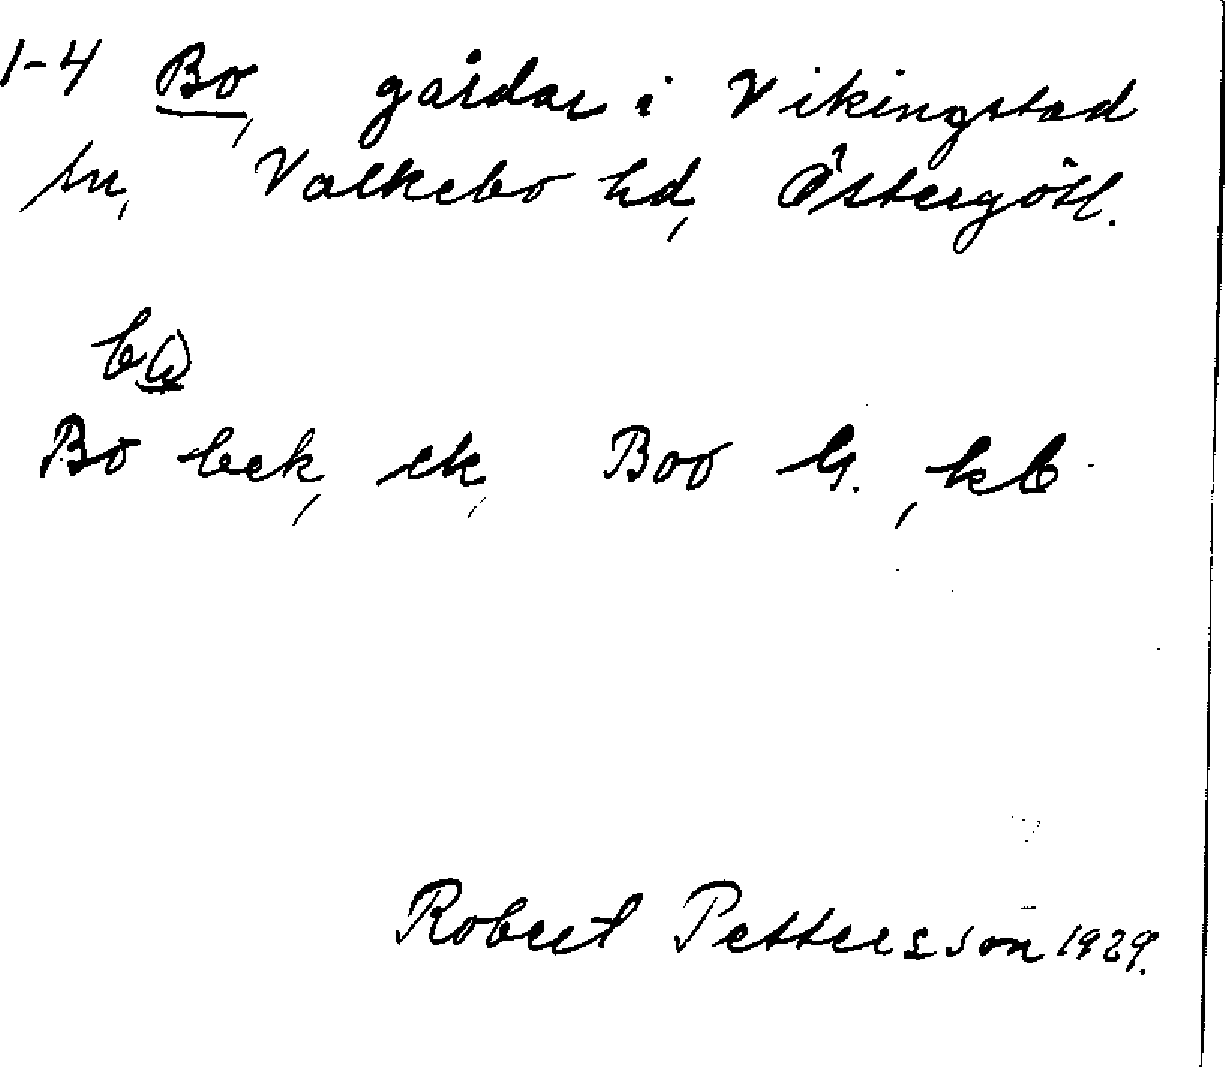 1-4 Bo, gårdar i Vikingstad
sn, Valkebo hd, Östergötl.
Bo bek, ek, Boo G., kb.
Robert Pettersson 1929.